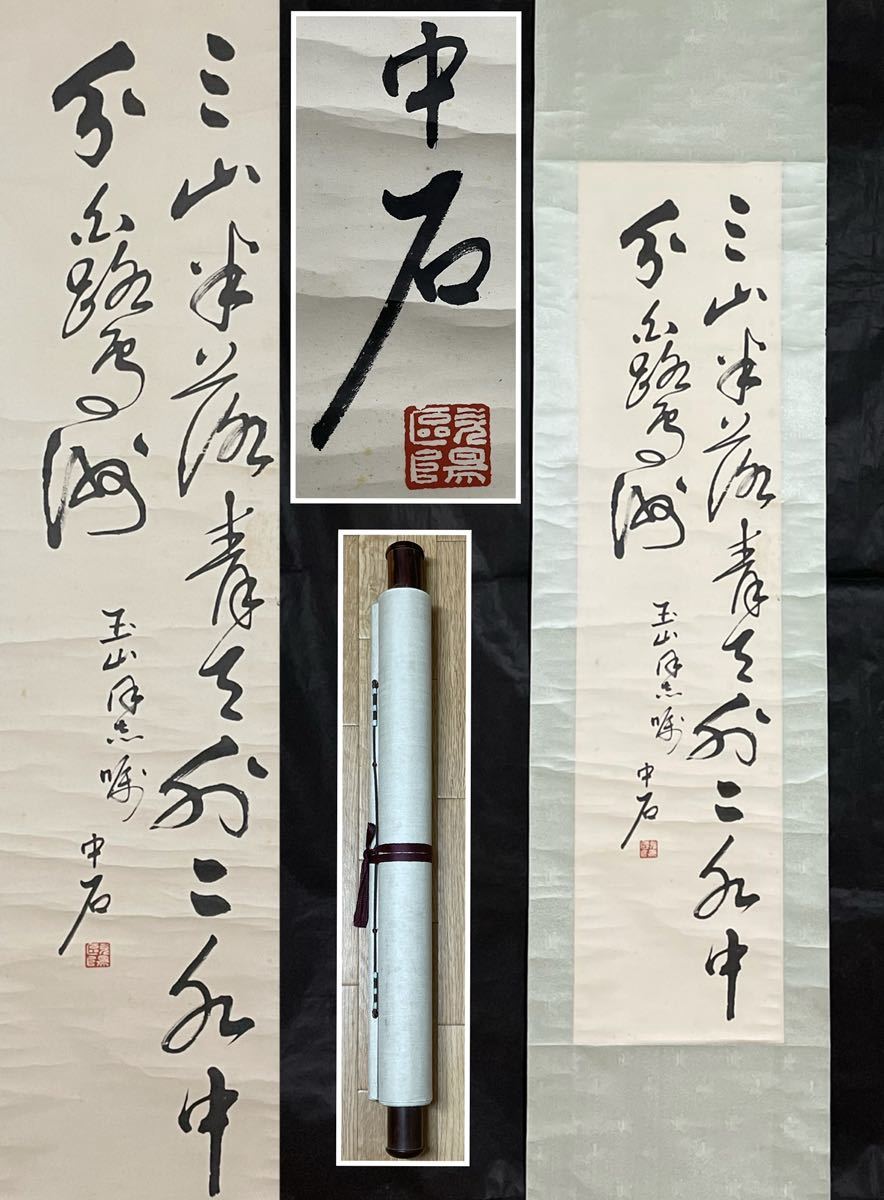 三山半落青天外二水中
分白鷺洲
玉山同志嘱
中石
中石
三山半落青天外二水中
分白鷺洲
玉山同志嘱
中石